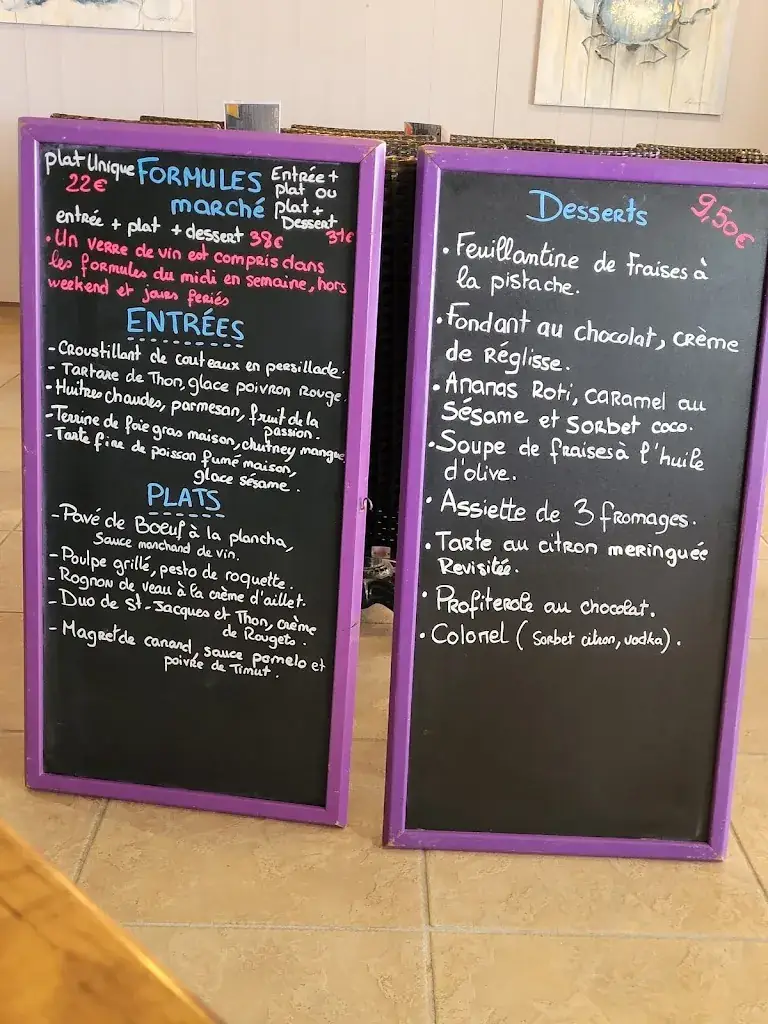 plat Unique
22€
FORMULES
marché
Entrée +
plat ou
plat +
Dessert
31€
entrée + plat + dessert 38€
• Un verre de vin est compris dans
les formules du midi en semaine, hors
weekend et jours feriés
ENTRÉES
- Croustillant de couteaux en persillade.
- Tartare de Thon, glace poivron Rouge.
- Huîtres chaudes, parmesan, fruit de la
passion.
- Terrine de foie gras maison, chutney mangue
- Tarte fine de poisson fumé maison,
glace sésame.
PLATS
- Pavé de Boeuf à la plancha,
Sauce marchand de vin.
- Poulpe grillé, pesto de roquette.
- Rognon de veau à la crème d'aillet.
- Duo de St-Jacques et Thon, crème
de Rougets.
- Magret de canard, sauce pomelo et
poivre de Timut.
Desserts
9,50€
• Feuillantine de fraises à
la pistache.
• Fondant au chocolat, crème
de Réglisse.
• Ananas Roti, caramel au
Sésame et Sorbet coco.
• Soupe de fraises à l'huile
d'olive.
• Assiette de 3 fromages.
• Tarte au citron meringuée
Revisitée.
• Profiterole au chocolat.
• Colonel (Sorbet citron, vodka).